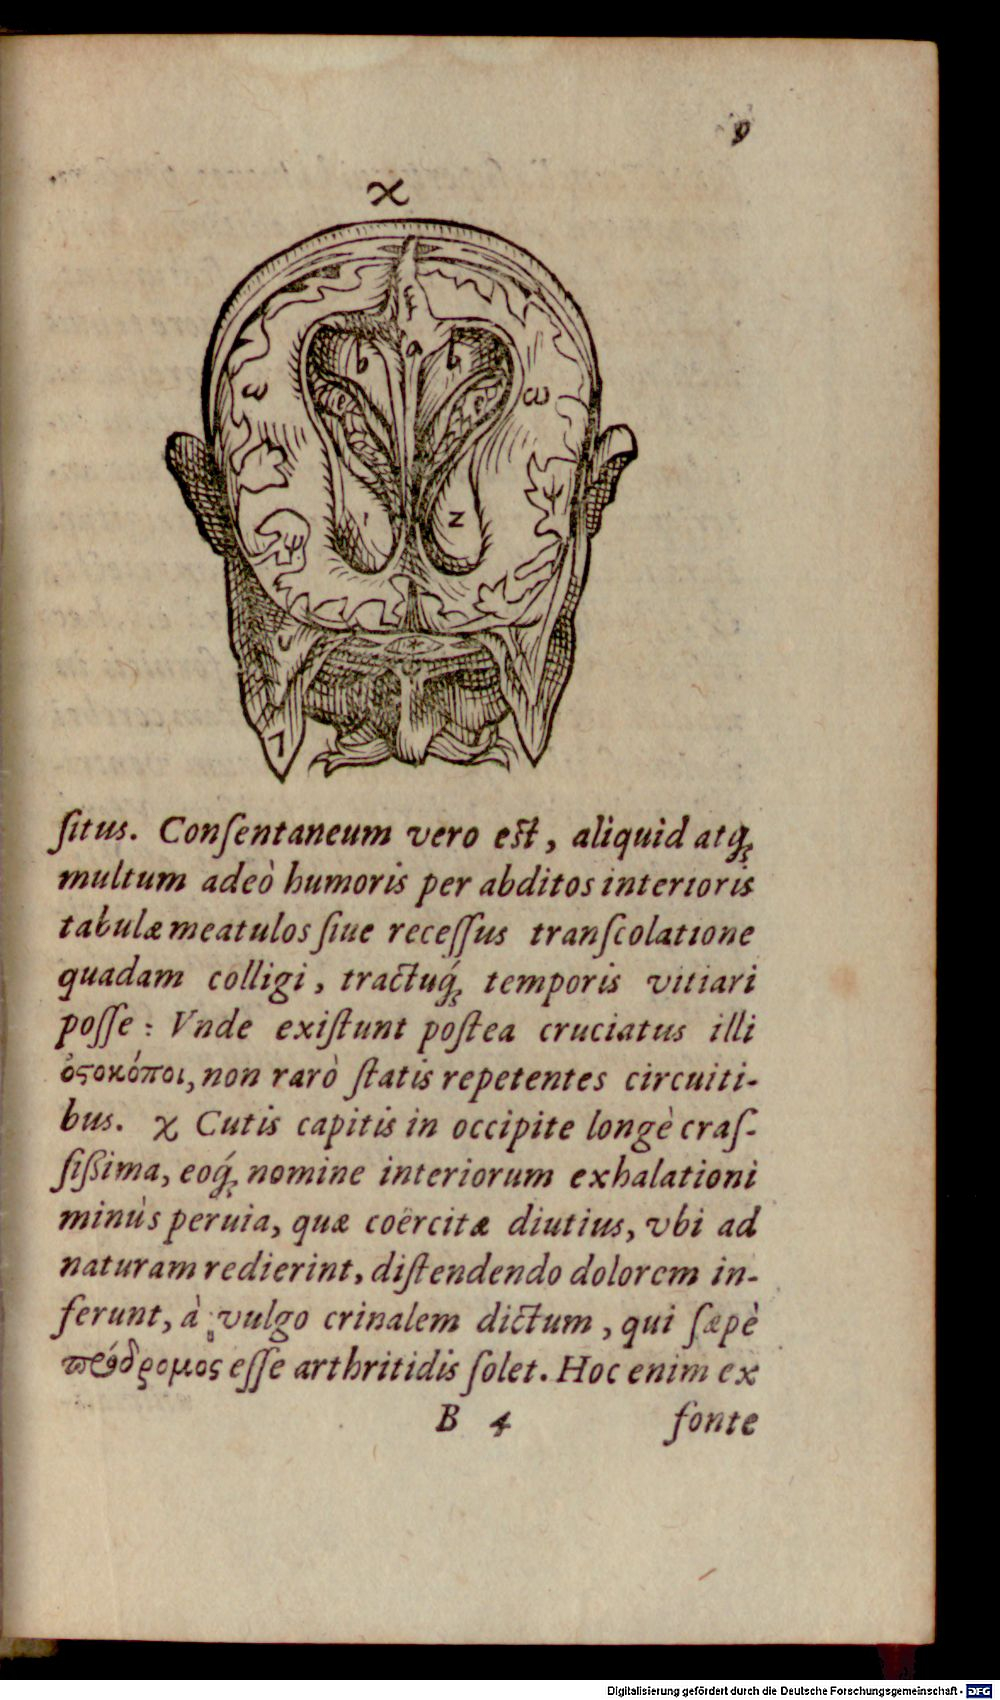 9
ϰ
ξ
b a b
ω e e ω
1 2
ſitus. Conſentaneum vero eſt, aliquid atq́;
multum adeò humoris per abditos interioris
tabulæ meatulos ſiue receſſus tranſcolatione
quadam colligi, tractuq́; temporis vitiari
poſſe: Vnde exiſtunt poſtea cruciatus illi
ὀϛοκόποι, non rarò ſtatis repetentes circuiti-
bus. ϰ Cutis capitis in occipite longè craſ-
ſiſsima, eoq́; nomine interiorum exhalationi
minùs peruia, quæ coërcitæ diutius, vbi ad
naturam redierint, diſtendendo dolorem in-
ferunt, à vulgo crinalem dictum, qui ſæpè
πρόδρομος eſſe arthritidis ſolet. Hoc enim ex
B 4 fonte
Digitalisierung gefördert durch die Deutsche Forschungsgemeinschaft - DFG